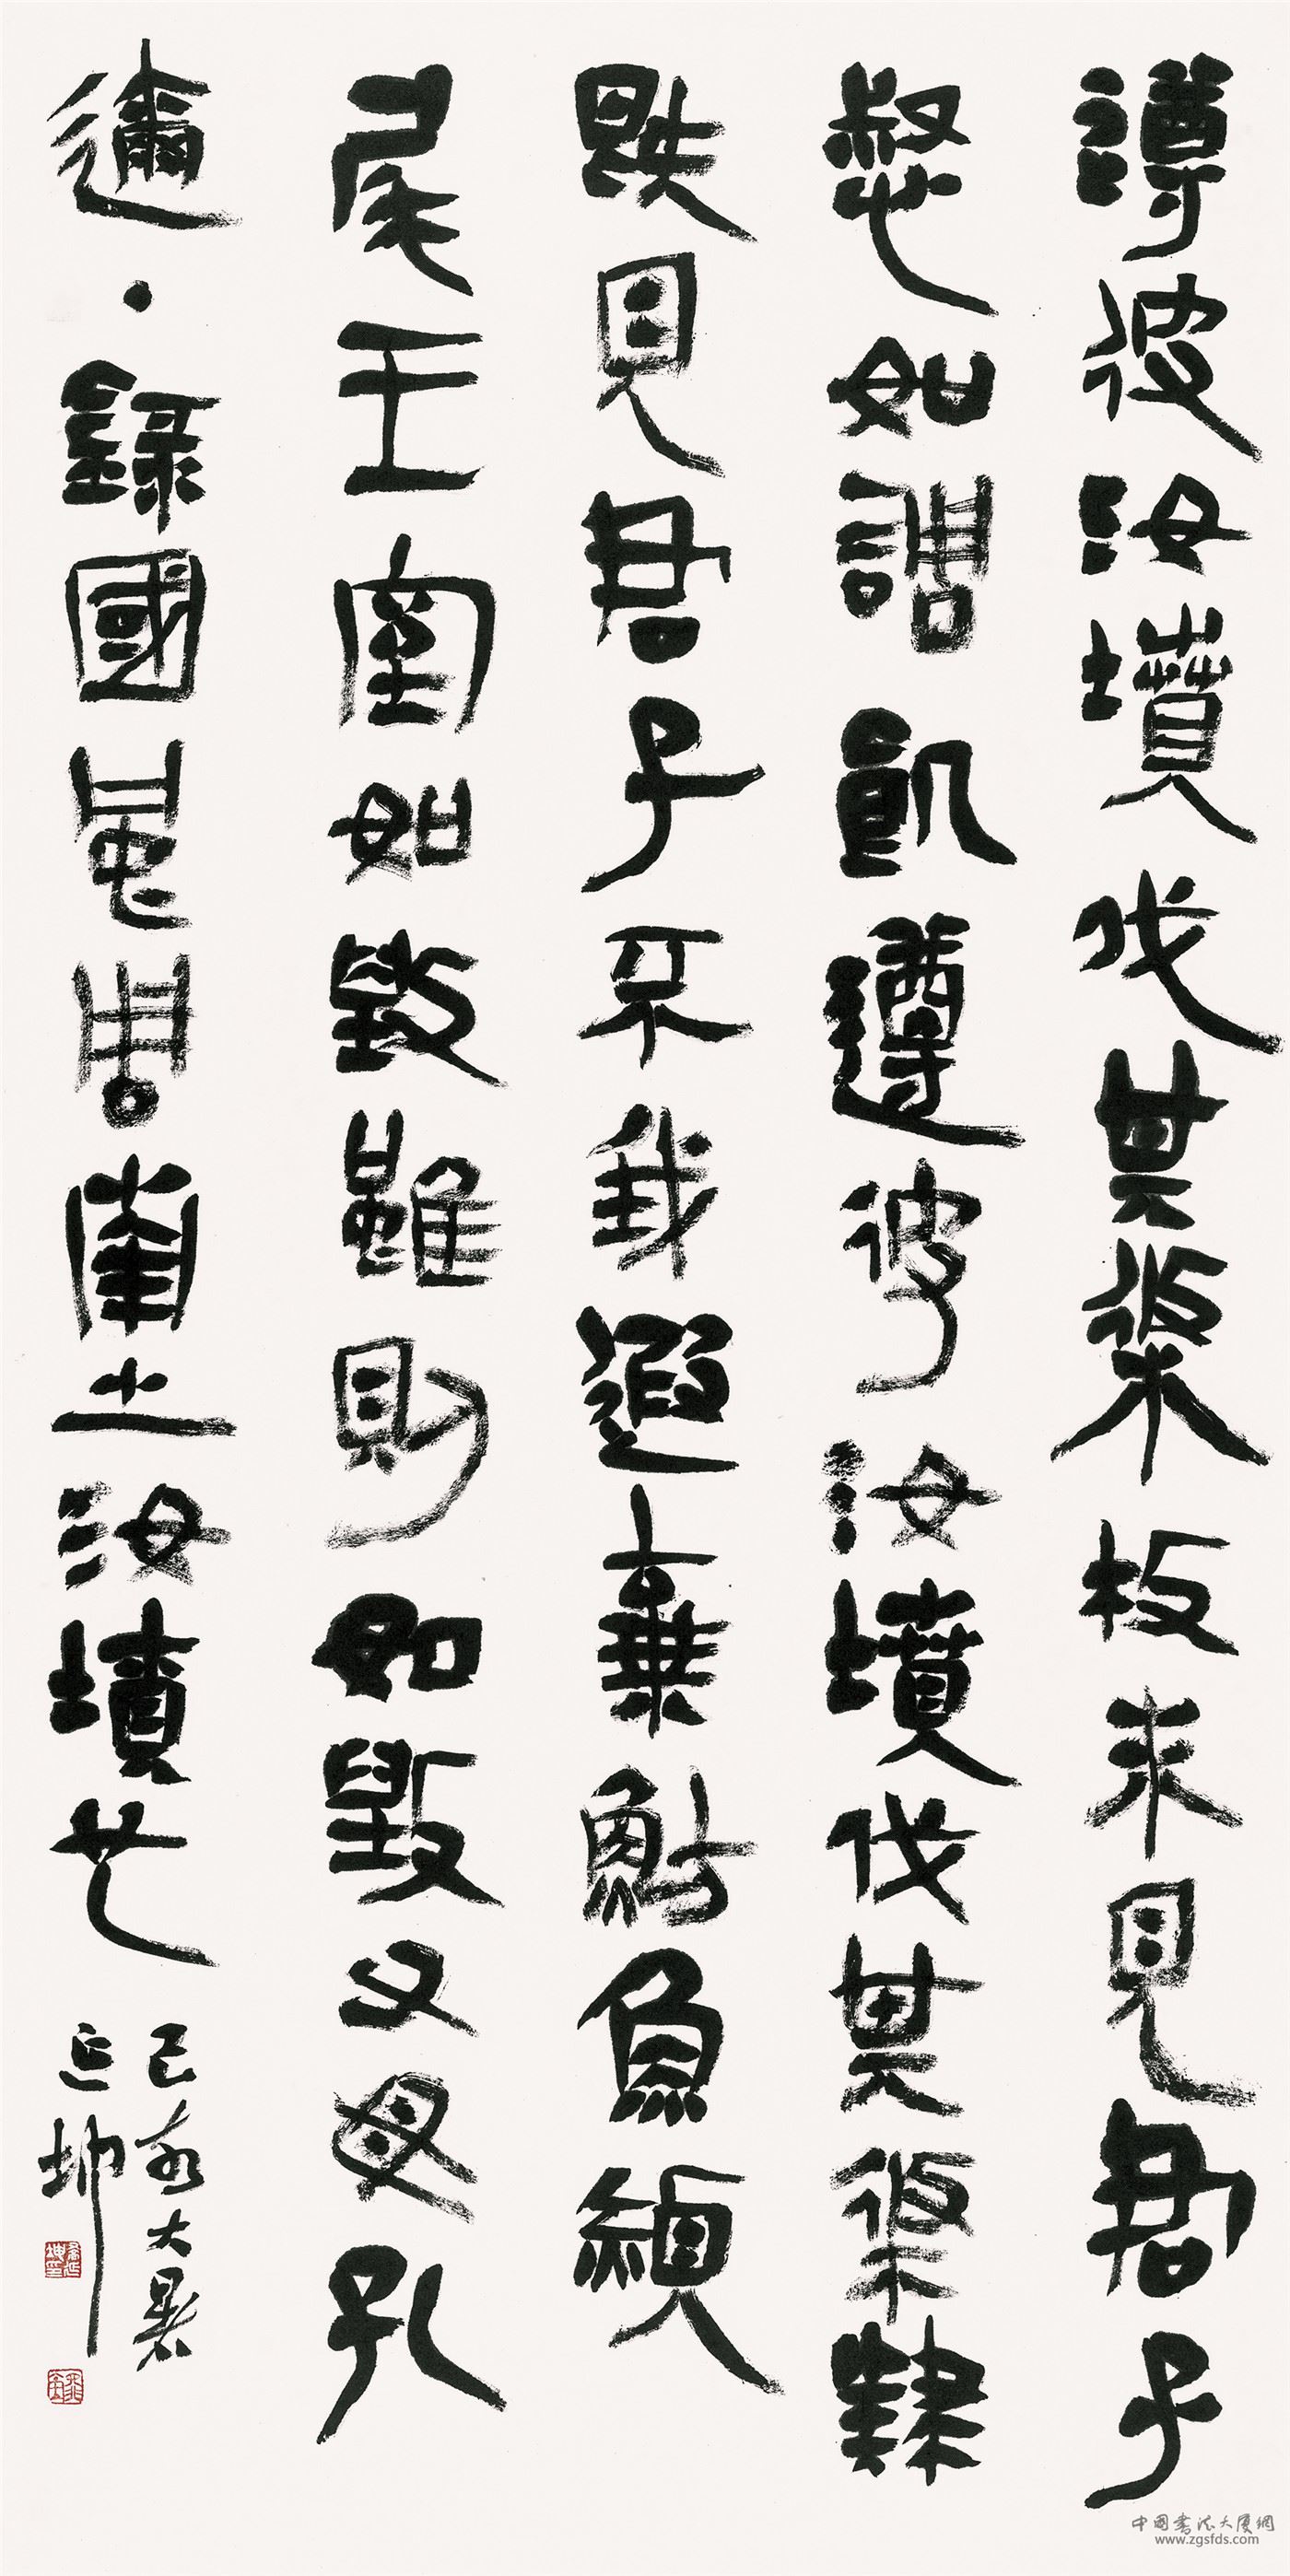 遵彼汝墳伐其條枚未見君子
惄如調飢遵彼汝墳伐其條肄
既見君子不我遐棄魴魚赬
尾王室如毀雖則如毀父母孔
邇·錄國風周南之汝墳也
己亥大暑
延坤
中国書法大厦網
www.zgsfds.com